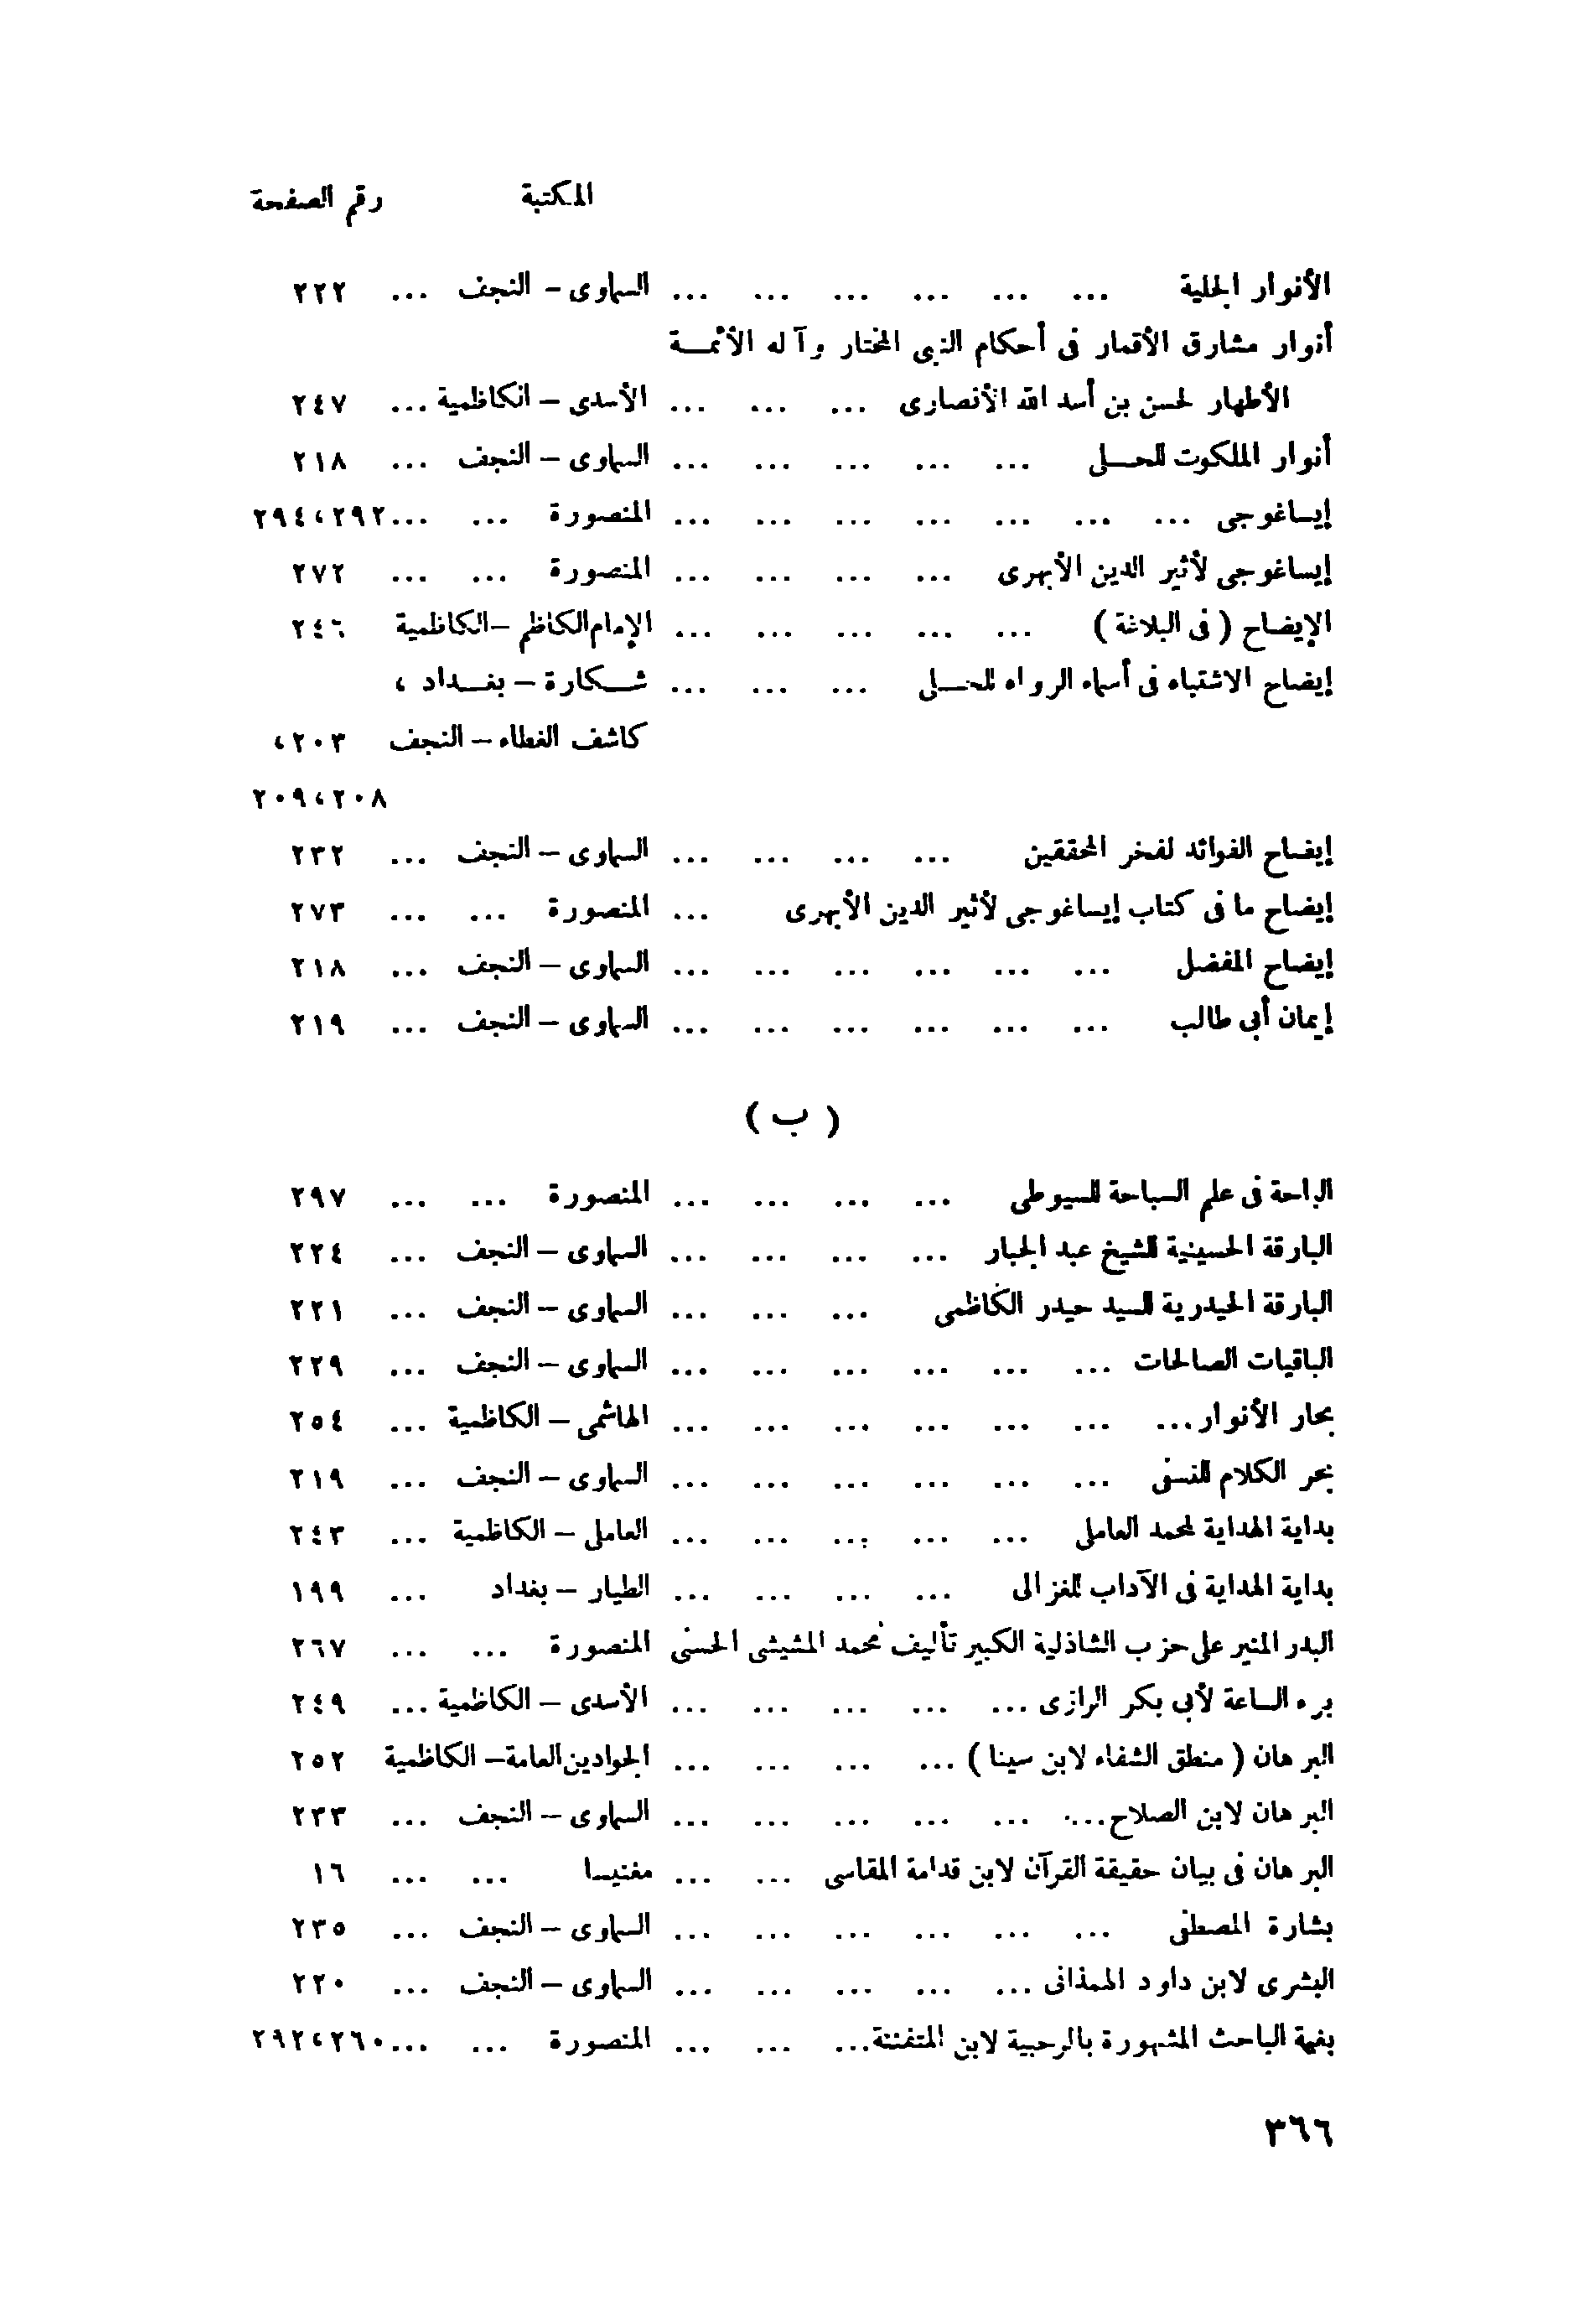 المكتبة رقم الصفحة
الأنوار الجلية ... ... ... ... ... ... السماوى – النجف ... ٢٢٢
أنوار مشارق الأقمار فى أحكام النبى المختار وآله الأئمـــة
الأطهار لحسن بن أسد الله الأنصارى ... ... ... الأسدى – الكاظمية ... ٢٤٧
أنوار الملكوت للحـــلى ... ... ... ... ... السماوى – النجف ... ٢١٨
إيساغوجى ... ... ... ... ... ... ... المنصورة ... ... ٢٩٢، ٢٩٤
إيساغوجى لأثير الدين الأبهرى ... ... ... ... المنصورة ... ... ٢٧٢
الإيضاح ( فى البلاغة ) ... ... ... ... ... الإمام الكاظم – الكاظمية ٢٤٦
إيضاح الاشتباه فى أسماء الرواه للحـــلى ... ... ... شـــكارة – بغـــداد ،
كاشف الغطاء – النجف ٢٠٣،
٢٠٨، ٢٠٩
إيضاح الفوائد لفخر المحققين ... ... ... ... السماوى – النجف ... ٢٣٢
إيضاح ما فى كتاب إيساغوجى لأثير الدين الأبهرى ... المنصورة ... ... ٢٧٣
إيضاح المفضل ... ... ... ... ... ... السماوى – النجف ... ٢١٨
إيمان أبى طالب ... ... ... ... ... ... السماوى – النجف ... ٢١٩
( ب )
الباحة فى علم السباحة للسيوطى ... ... ... ... المنصورة ... ... ٢٩٧
البارقة الحسينية للشيخ عبد الجبار ... ... ... ... السماوى – النجف ... ٢٢٤
البارقة الحيدرية للسيد حيدر الكاظمى ... ... ... السماوى – النجف ... ٢٢١
الباقيات الصالحات ... ... ... ... ... ... السماوى – النجف ... ٢٢٩
بحار الأنوار ... ... ... ... ... ... ... الهاشمى – الكاظمية ... ٢٥٤
بحر الكلام للنسفى ... ... ... ... ... ... السماوى – النجف ... ٢١٩
بداية الهداية لمحمد العاملى ... ... ... ... ... العاملى – الكاظمية ... ٢٤٣
بداية الهداية فى الآداب للغزالى ... ... ... ... الطيار – بغداد ... ١٩٩
البدر المنير على حزب الشاذلية الكبير تأليف محمد المشيشى الحسنى المنصورة ... ... ٢٦٧
برء الساعة لأبى بكر الرازى ... ... ... ... ... الأسدى – الكاظمية ... ٢٤٩
البرهان ( منطق الشفاء لابن سينا ) ... ... ... ... الجوادين العامة – الكاظمية ٢٥٢
البرهان لابن الصلاح ... ... ... ... ... ... السماوى – النجف ... ٢٣٣
البرهان فى بيان حقيقة القرآن لابن قدامة المقاسى ... ... مغنيسا ... ... ١٦
بشارة المصطفى ... ... ... ... ... ... السماوى – النجف ... ٢٣٥
البشرى لابن داود الهمذانى ... ... ... ... ... السماوى – النجف ... ٢٢٠
بغية الباحث المشهورة بالرحبية لابن المتفننة ... ... ... المنصورة ... ... ٢٦٠، ٢٩٢
٣٦٦